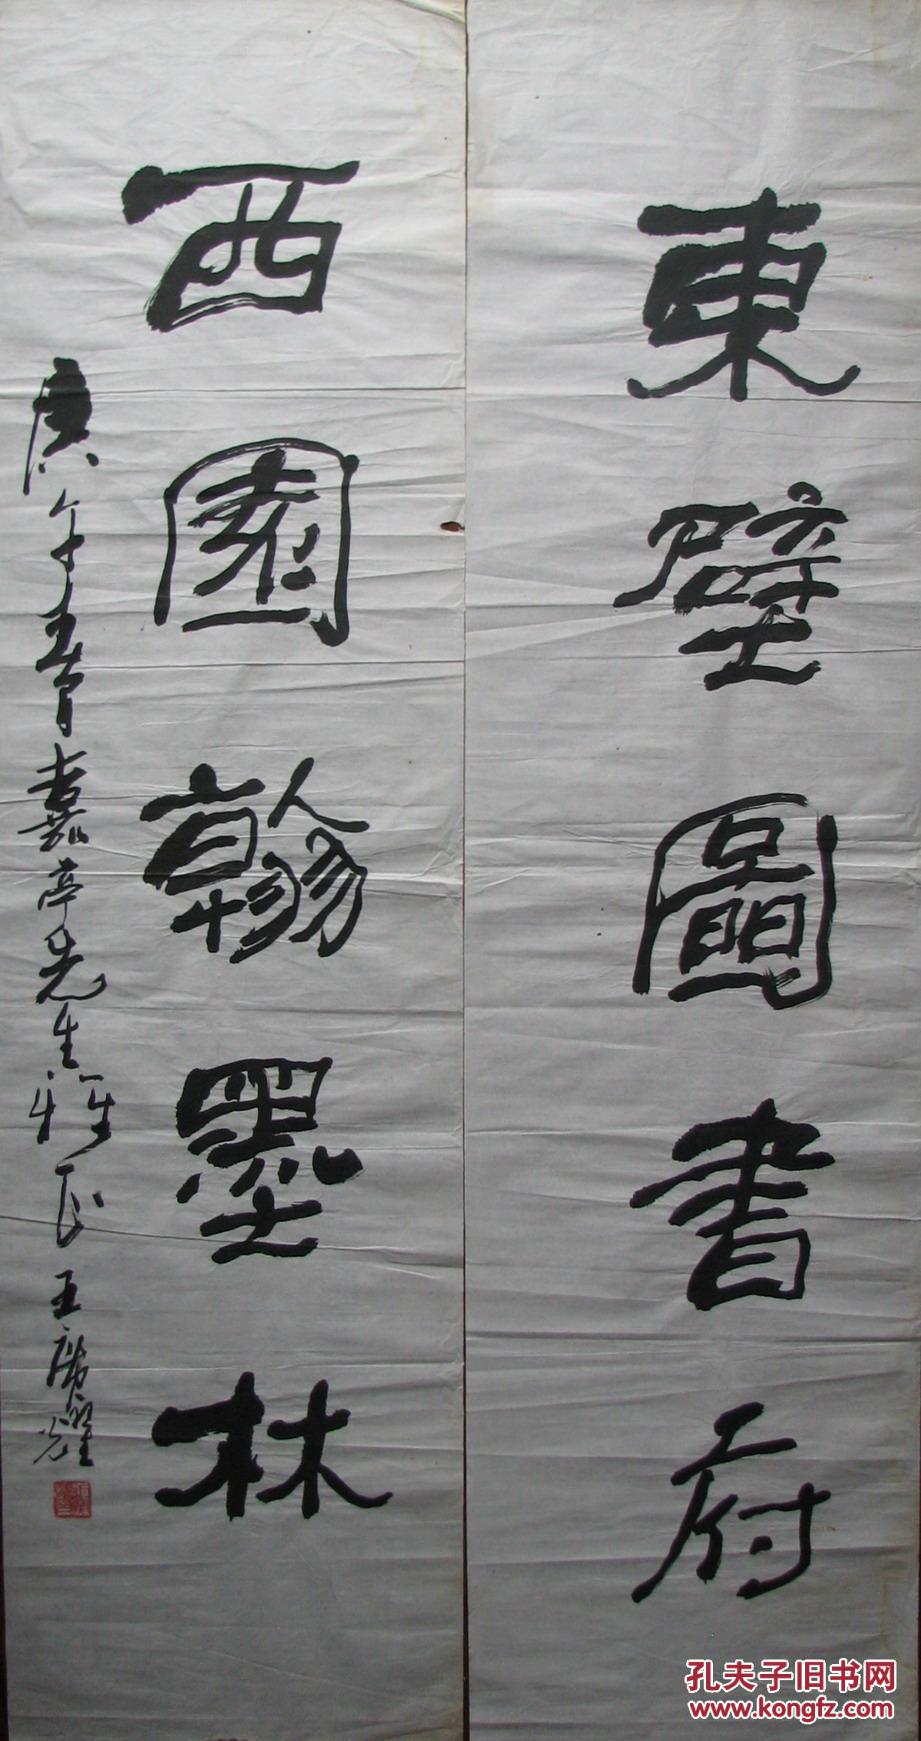 東壁圖書府
西園翰墨林
庚午五月嘉亭先生雅正 王廣耀
孔夫子旧书网
www.kongfz.com